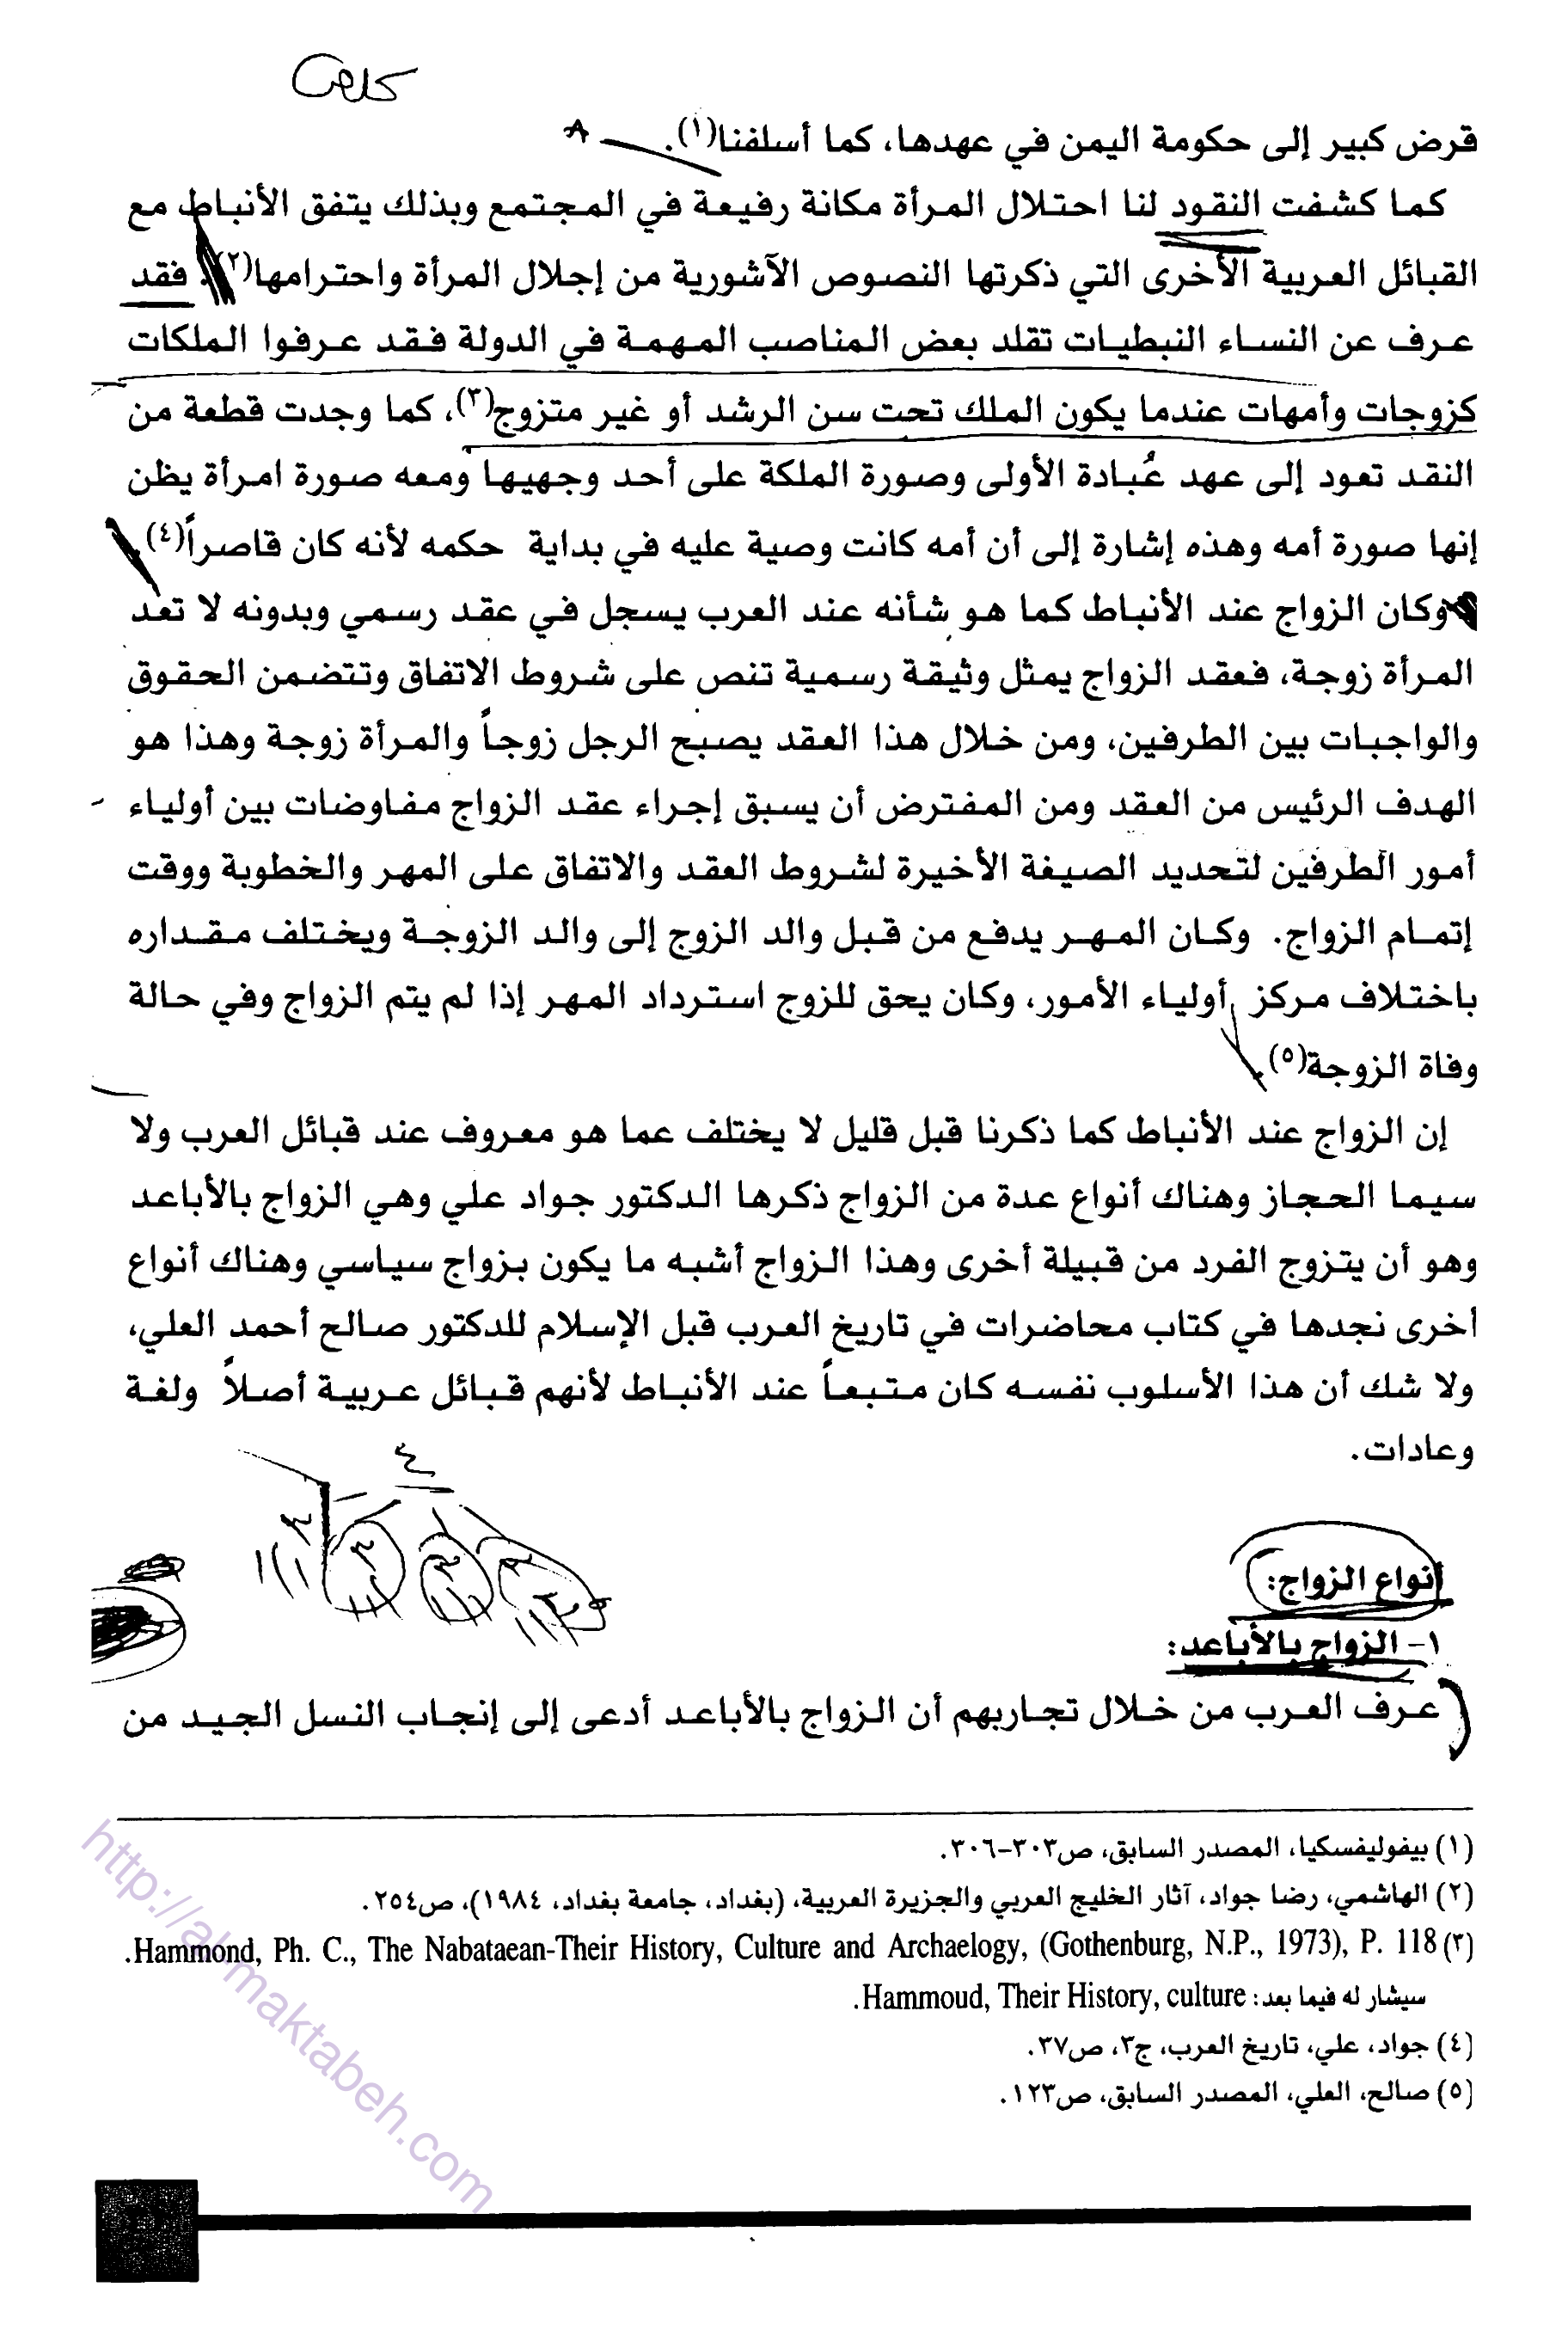 قرض كبير إلى حكومة اليمن في عهدها، كما أسلفنا(١).
كما كشفت النقود لنا احتلال المرأة مكانة رفيعة في المجتمع وبذلك يتفق الأنباط مع
القبائل العربية الأخرى التي ذكرتها النصوص الآشورية من إجلال المرأة واحترامها(٢). فقد
عرف عن النساء النبطيات تقلد بعض المناصب المهمة في الدولة فقد عرفوا الملكات
كزوجات وأمهات عندما يكون الملك تحت سن الرشد أو غير متزوج(٣)، كما وجدت قطعة من
النقد تعود إلى عهد عُبادة الأولى وصورة الملكة على أحد وجهيها ومعه صورة امرأة يظن
إنها صورة أمه وهذه إشارة إلى أن أمه كانت وصية عليه في بداية حكمه لأنه كان قاصراً(٤).
وكان الزواج عند الأنباط كما هو شأنه عند العرب يسجل في عقد رسمي وبدونه لا تعد
المرأة زوجة، فعقد الزواج يمثل وثيقة رسمية تنص على شروط الاتفاق وتتضمن الحقوق
والواجبات بين الطرفين، ومن خلال هذا العقد يصبح الرجل زوجاً والمرأة زوجة وهذا هو
الهدف الرئيس من العقد ومن المفترض أن يسبق إجراء عقد الزواج مفاوضات بين أولياء
أمور الطرفين لتحديد الصيغة الأخيرة لشروط العقد والاتفاق على المهر والخطوبة ووقت
إتمام الزواج. وكان المهر يدفع من قبل والد الزوج إلى والد الزوجة ويختلف مقداره
باختلاف مركز أولياء الأمور، وكان يحق للزوج استرداد المهر إذا لم يتم الزواج وفي حالة
وفاة الزوجة(٥).
إن الزواج عند الأنباط كما ذكرنا قبل قليل لا يختلف عما هو معروف عند قبائل العرب ولا
سيما الحجاز وهناك أنواع عدة من الزواج ذكرها الدكتور جواد علي وهي الزواج بالأباعد
وهو أن يتزوج الفرد من قبيلة أخرى وهذا الزواج أشبه ما يكون بزواج سياسي وهناك أنواع
أخرى نجدها في كتاب محاضرات في تاريخ العرب قبل الإسلام للدكتور صالح أحمد العلي،
ولا شك أن هذا الأسلوب نفسه كان متبعاً عند الأنباط لأنهم قبائل عربية أصلاً ولغة
وعادات.
٤
أنواع الزواج:
١- الزواج بالأباعد:
عرف العرب من خلال تجاربهم أن الزواج بالأباعد أدعى إلى إنجاب النسل الجيد من
(١) بيفوليفسكيا، المصدر السابق، ص٣٠٣-٣٠٦.
(٢) الهاشمي، رضا جواد، آثار الخليج العربي والجزيرة العربية، (بغداد، جامعة بغداد، ١٩٨٤)، ص٢٥٤.
(٣) Hammond, Ph. C., The Nabataean-Their History, Culture and Archaelogy, (Gothenburg, N.P., 1973), P. 118.
سيشار له فيما بعد: Hammoud, Their History, culture.
(٤) جواد، علي، تاريخ العرب، ج٣، ص٣٧.
(٥) صالح، العلي، المصدر السابق، ص١٢٣.
http://al-maktabeh.com